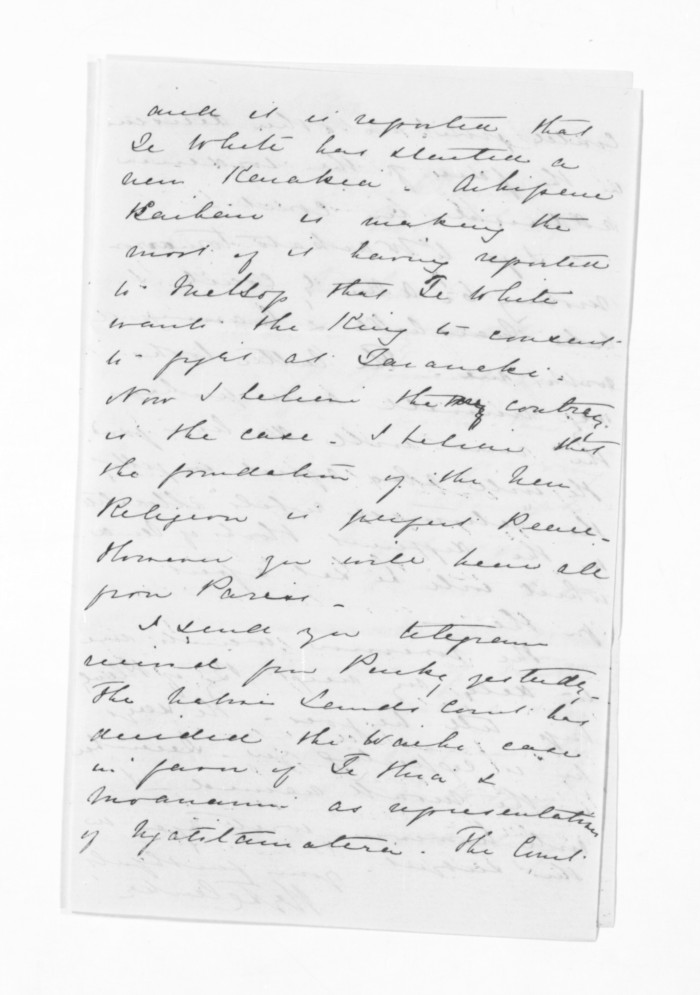 and it is reported that
Te White has started a
new Karakia. Arkipene
Kaihau is making the
most of it having reported
to Mellsop that Te White
wants the King to consent
to fight at Taranaki.
Now I believe the contrary
is the case - I believe that
the foundation of the New
Religion is perfect Peace -
However you will hear all
from Paris -
I send you telegram
received from Puckey yesterday -
The Native Lands Court has
decided the Waihi case
in favor of Te Hira &
Moananui as representatives
of Ngatitamatera. The Court